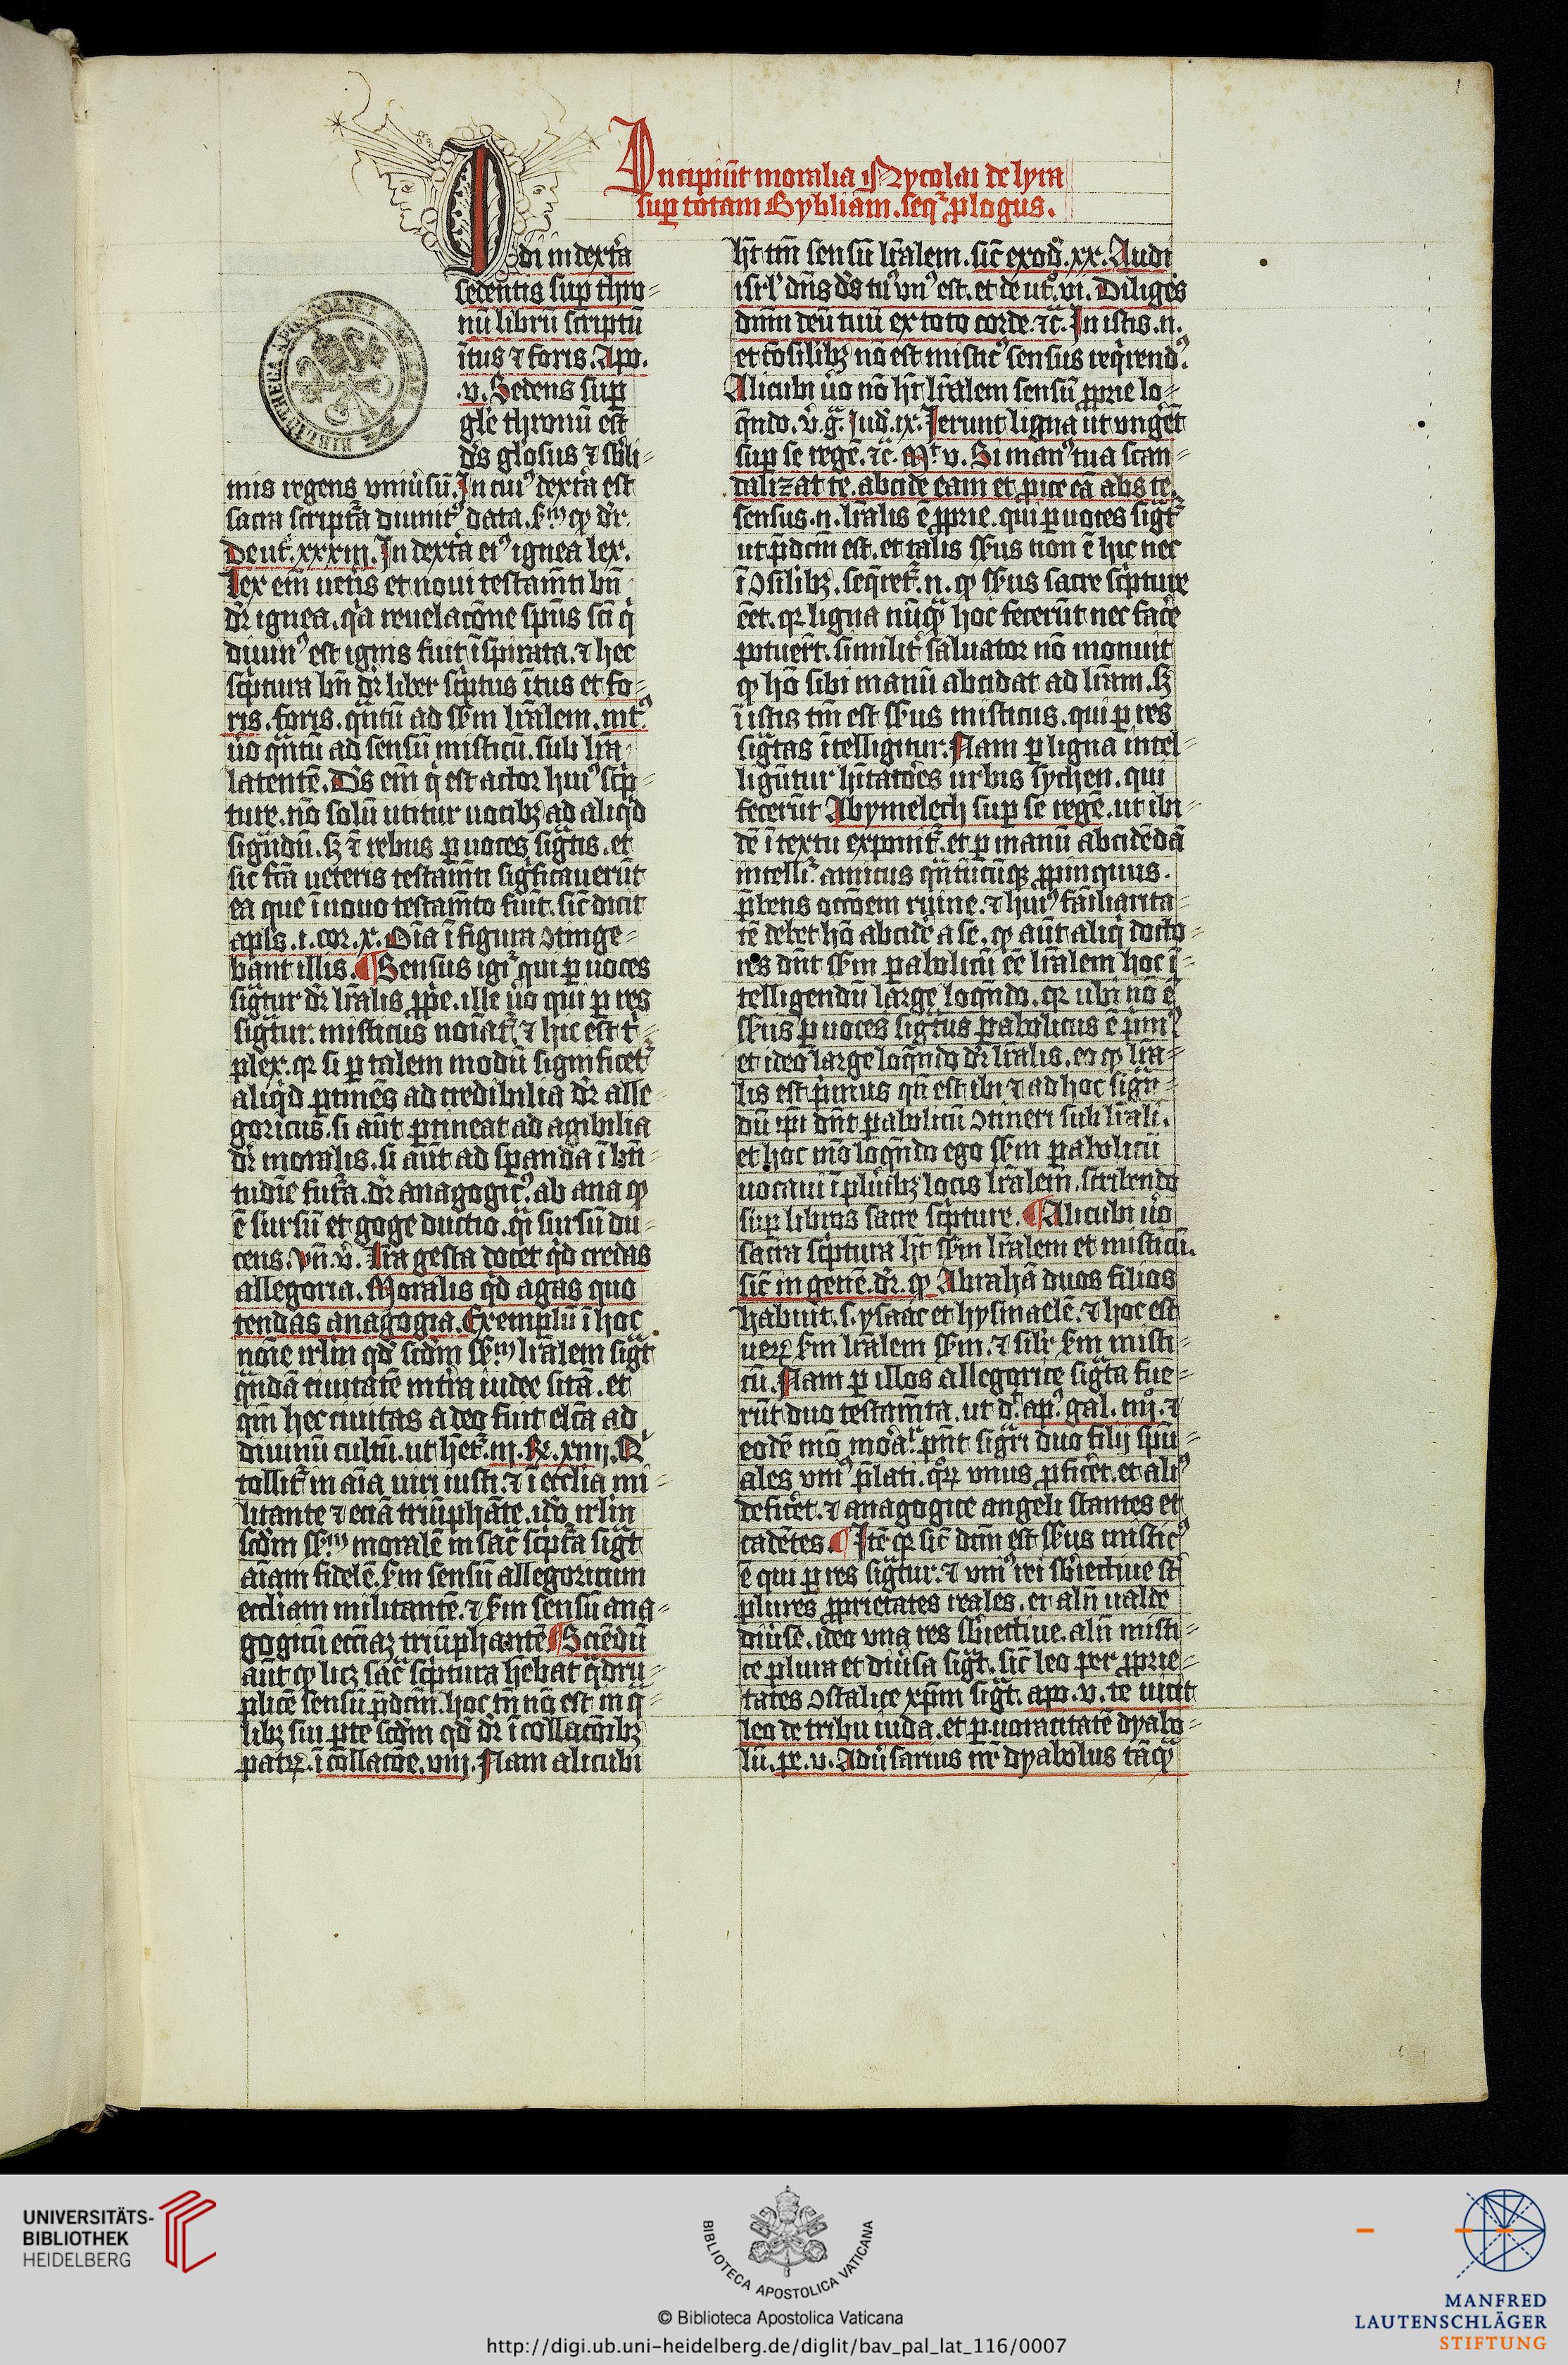 Incipiu͞t moralia Nycolai de lyra
sup totam Bybliam. seqr plogus.
Vidi in dext͛a
sedentis sup thro=
nū librū scriptū
ītus ⁊ foris. Apo.
.v. Sedens sup
gle thronū est
ds glosus ⁊ sbli=
mis regens vniusū. In cuiꝰ dext͛a est
sacra script͛a diuinitꝰ data. km ꝙ dr
Deut͛. xxxiij. In dext͛a eiꝰ ignea lex.
Lex em uetis et noui testam̄ti bn̄
dr ignea. q͛a reuelacōne spūs sc̄i q͛
diuinꝰ est ignis fuit īspirata. ⁊ hec
sc͛ptura bn̄ dr liber sc͛ptus ītus et fo=
ris. foris. qntū ad s̄sm lr̄alem. intꝰ
uo qntū ad sensū misticū. sub lr̄a
latentē. Ds em q͛ est actor huiꝰ sc͛p=
ture. nō solū utitur uocibꝫ ad aliq͛d
signdū. sꝫ ⁊ rebus p uoces sigtis. et
sic fc̄a ueteris testam̄ti sigficauerūt
ea que ī nouo testam̄to fiūt. sic dicit
apls. i. cor. x. Oīa ī figura ↄtinge=
bant illis. ¶ Sensus igr qui p uoces
sigtur dr lr̄alis ppe. ille uo qui p res
sigtur. misticus noīat͛. ⁊ hic est t͛=
plex. qr si p talem modū significet͛
aliq͛d ptinēs ad credibilia dr alle=
goricus. si aūt ptineat ad agibilia
dr moralis. si aūt ad spanda ī bn̄=
tudīe fut͛a. dr anagogicꝰ. ab ana ꝙ
ē sursū et goge ductio. q͛i sursū du=
cens. vn̄. v͛. Lr̄a gesta docet q͛d credas
allegoria. Moralis q͛d agas quo
tendas anagogia. Exemplū ī hoc
noīe irlm qd̄ scdm s̄sm lr̄alem sigt
qndā ciuitatē mt͛ia iudee sitā. et
qm hec ciuitas adeo fuit elc̄a ad
diuinū cultū. ut het͛. iij. R. xiiij. Q͛
tollit͛ in aīa uiri iusti. ⁊ ī ecclia mi=
litante ⁊ eciā triūphāte. ido irlm
scdm s̄sm moralē in sac͛ sc͛pt͛a sigt
aīam fidelē. km sensū allegoricum
eccliam militantē. ⁊ km sensū ana=
gogicū ecciaꝫ triūphantē ¶ Sciēdū
aūt ꝙ licꝫ sac͛ sc͛ptura hebat q͛dru=
plicē sensū pdcm̄. hoc tn̄ nō est in q͛=
libꝫ sui pte scdm qd̄ dr ī collacōibꝫ
patrꝝ. ī collacōe. viij. Nam alicubi
ht tm̄ sensū lr̄alem. sic exod. xx. Audi
isrl dns ds tuꝰ vnꝰ est. et deut͛. vi. Diliges
dnm deū tuū ex toto corde. ⁊c. In istis. n.
et cōsilibꝫ nō est misticꝰ sensus req͛rendꝰ.
Alicubi uo nō ht lr̄alem sensū pprie lo=
qndo. v͛. g͛. Jud. ix. Ierunt ligna ut vngēt
sup se regē. ⁊c. Mt v. Si manꝰ tua scan=
dalizat te. abcide eam et pice eā abs te.
sensus. n. lr̄alis ē pprie. qui p uoces sigt͛
ut pdcm̄ est. et talis s̄sus non ē hic nec
ī ↄsilibꝫ. seq͛ret͛. n. ꝙ s̄sus sacre sc͛pture
eēt. qr ligna nūqꝫ hoc fecerūt nec face
potuert. similit͛ saluator nō monuit
ꝙ hō sibi manū abcidat ad lr̄am. sꝫ
ī istis tm̄ est s̄sus misticus. qui p res
sigtas ītelligitur. Nam p ligna intel=
ligūtur hītatores urbis sychen. qui
fecerūt Abymelech sup se regē. ut ibi=
dē ī textu exponit͛. et p manū abcidēdā
intelli͛ amicus qntūcūqꝫ ppinquus.
pbens occōem ruine. ⁊ huiꝰ fāiliarita=
tē debet hō abcide a se. ꝙ aūt aliq͛ docto=
res dnt s̄sm pabolicū ee lr̄alem hoc ī=
telligendū large loqndo. qr ubi nō ē
s̄sus p uoces sigtus pabolicus ē p͛mꝰ
et ideo large loqndo dr lr̄alis. eo ꝙ lr̄a=
lis est p͛mus qn̄ est ibi ⁊ ad hoc sign=
dū ip̄i dnt pabolicū ↄtineri sub lr̄ali.
et hoc mō loqndo ego s̄sm pabolicū
uocaui ī plu͛ibꝫ locis lr̄alem. scribendo
sup libros sacre sc͛pture. ¶ Alicubi uo
sacra sc͛ptura ht s̄sm lr̄alem et misticū.
sic in gene. dr. ꝙ Abrahā duos filios
habuit. s. ysaac et hysmaelē. ⁊ hoc est
uerꝝ km lr̄alem s̄sm. ⁊ silr km misti=
cū. Nam p illos allegorice sigta fue=
rūt duo testam̄ta. ut d͛t apꝰ. gal. iiij. ⁊
eodē mō moa͛r pn̄t sigri duo filij spu͛=
ales vniꝰ plati. qꝝ vnus pficet. et aliꝰ
deficet. ⁊ anagogice angeli stantes et
cadētes. ¶ Itē qr sic dcm est s̄sus misticꝰ
ē qui p res sigtur. ⁊ vniꝰ rei sbiectiue st̄
plures pprietates reales. et aln̄ ualde
diuse. ideo vna res sbiectiue. aln̄ misti=
ce plura et diuisa sigt. sic leo per pprie=
tates ↄstalice xpm sigt. apo. v. te uicit
leo de tribu iuda. et p uoracitatē dyabo=
lū. pe. v. Adusarius nr dyabolus tāqꝫ
UNIVERSITÄTS-
BIBLIOTHEK
HEIDELBERG
BIBLIOTECA APOSTOLICA VATICANA
© Biblioteca Apostolica Vaticana
http://digi.ub.uni-heidelberg.de/diglit/bav_pal_lat_116/0007
MANFRED
LAUTENSCHLÄGER
STIFTUNG